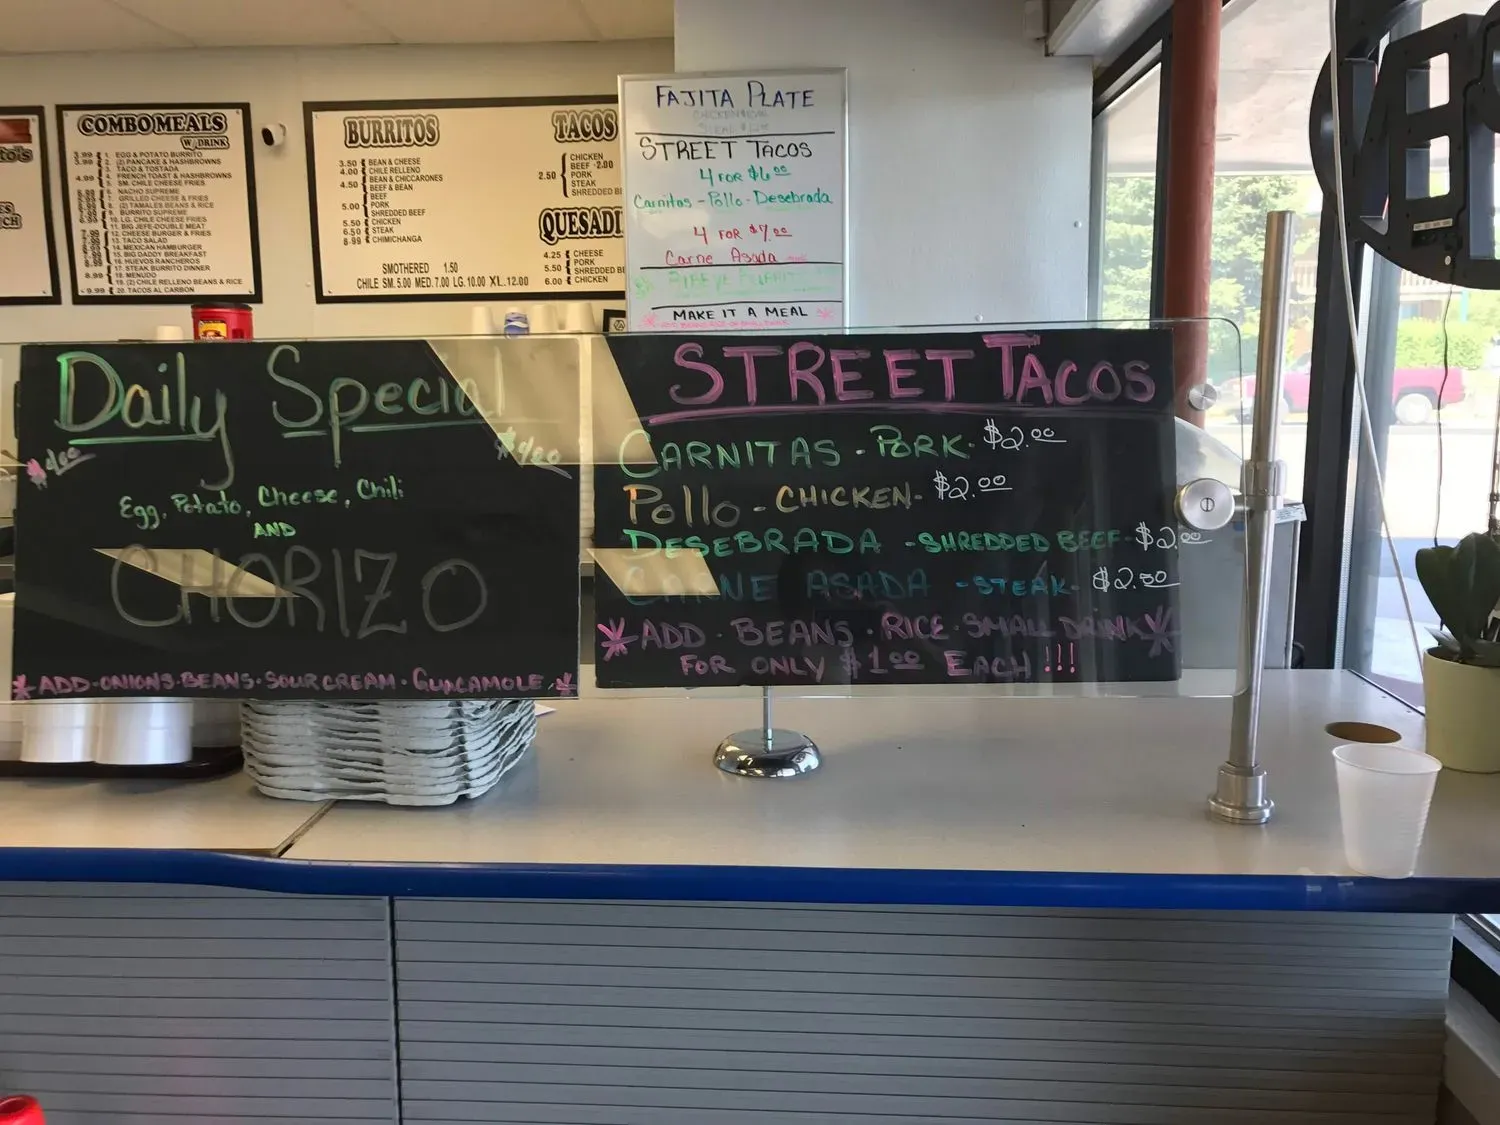 COMBO MEALS
W/ DRINK
3.99 1. EGG & POTATO BURRITO
3.99 2. (2) PANCAKE & HASHBROWNS
3. TACO & TOSTADA
4.99 4. FRENCH TOAST & HASHBROWNS
5. SM. CHILE CHEESE FRIES
6. NACHO SUPREME
7. GRILLED CHEESE & FRIES
8. (2) TAMALES BEANS & RICE
9. BURRITO SUPREME
10. LG. CHILE CHEESE FRIES
11. BIG JEFE-DOUBLE MEAT
12. CHEESE BURGER & FRIES
13. TACO SALAD
14. MEXICAN HAMBURGER
15. BIG DADDY BREAKFAST
16. HUEVOS RANCHEROS
8.99 17. STEAK BURRITO DINNER
18. MENUDO
19. (2) CHILE RELLENO BEANS & RICE
9.99 20. TACOS AL CARBON
BURRITOS
3.50 BEAN & CHEESE
4.00 CHILE RELLENO
BEAN & CHICCARONES
4.50 BEEF & BEAN
BEEF
5.00 PORK
SHREDDED BEEF
5.50 CHICKEN
6.50 STEAK
8.99 CHIMICHANGA
SMOTHERED 1.50
CHILE SM. 5.00 MED. 7.00 LG. 10.00 XL. 12.00
TACOS
CHICKEN
BEEF ·2.00
2.50 PORK
STEAK
SHREDDED BE
QUESADI
4.25 CHEESE
PORK
5.50 SHREDDED BE
6.00 CHICKEN
FAJITA PLATE
STREET TACOS
4 FOR $6.00
Carnitas - Pollo - Desebrada
4 FOR $7.00
Carne Asada
MAKE IT A MEAL
Daily Special
$4.00 $4.00
Egg, Potato, Cheese, Chili
AND
CHORIZO
ADD·ONIONS·BEANS·SOUR CREAM·GUACAMOLE
STREET TACOS
CARNITAS - PORK - $2.00
Pollo - CHICKEN - $2.00
DESEBRADA - SHREDDED BEEF - $2.00
CARNE ASADA - STEAK - $2.50
ADD · BEANS · RICE · SMALL DRINK
FOR ONLY $1.00 EACH!!!